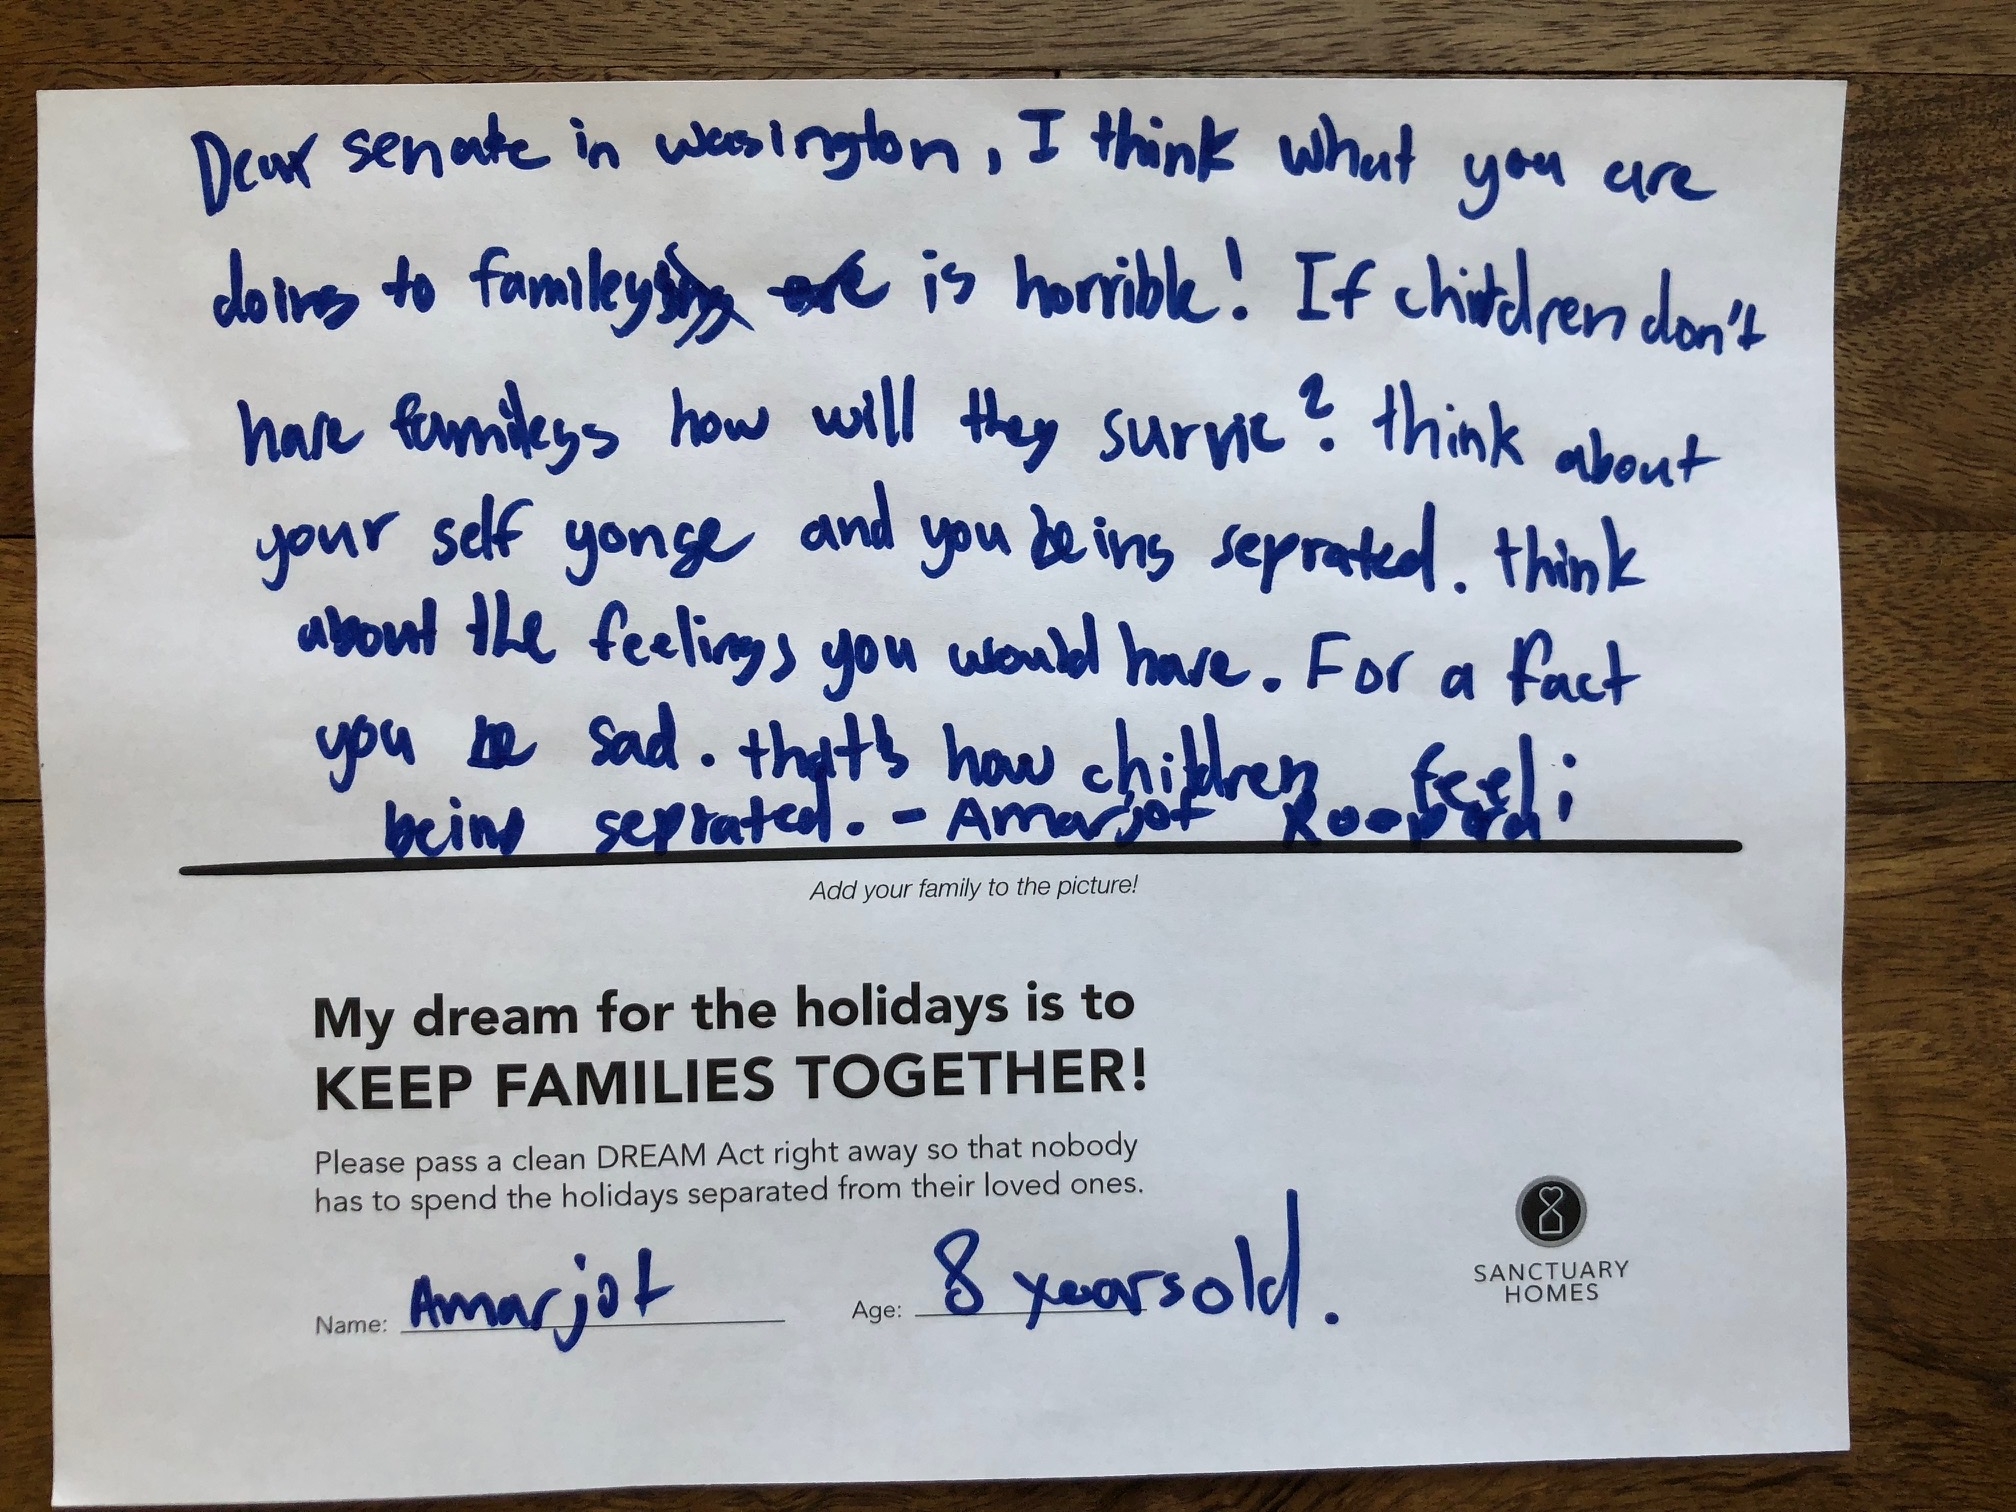 Dear senate in wasington, I think what you are
doing to familey is horrible! If children don't
have famileys how will they survie? think about
your self yonge and you being seprated. think
about the feelings you would have. For a fact
you be sad. that's how children feel;
being seprated. - Amarjot
Add your family to the picture!
My dream for the holidays is to
KEEP FAMILIES TOGETHER!
Please pass a clean DREAM Act right away so that nobody
has to spend the holidays separated from their loved ones.
Name: Amarjot Age: 8 years old.
SANCTUARY
HOMES